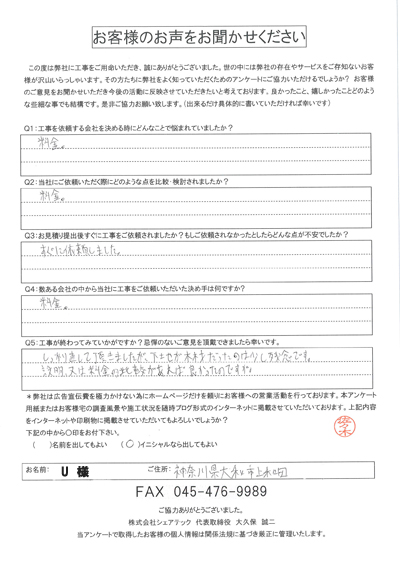 お客様のお声をお聞かせください
この度は弊社に工事をご用命いただき、誠にありがとうございました。世の中には弊社の存在やサービスをご存知ないお客
様が沢山いらっしゃいます。その方たちに弊社をよく知っていただくためのアンケートにご協力いただけるでしょうか？ お客様
のご意見をお聞かせいただき今後の活動に反映させていただきたいと考えております。良かったこと、嬉しかったことどのよう
な些細な事でも結構です。是非ご協力お願い致します。（出来るだけ具体的に書いていただければ幸いです）
Q1:工事を依頼する会社を決める時にどんなことで悩まれていましたか？
料金。
Q2:当社にご依頼いただく際にどのような点を比較・検討されましたか？
料金。
Q3:お見積り提出後すぐに工事をご依頼されましたか？もしご依頼されなかったとしたらどんな点が不安でしたか？
すぐに依頼しました。
Q4:数ある会社の中から当社に工事をご依頼いただいた決め手は何ですか？
料金。
Q5:工事が終わってみていかがですか？忌憚のないご意見を頂戴できましたら幸いです。
しっかり直して頂きましたが、下地が木材だったのは少し
説明又は料金の
＊弊社は広告宣伝費を極力かけない為にホームページだけを頼りにお客様への営業活動を行っております。本アンケート
用紙またはお客様宅の調査風景や施工状況を随時ブログ形式のインターネットに掲載させていただいております。上記内容
をインターネットや印刷物に掲載させていただいてもよろしいでしょうか？
下記の中から〇印をお付け下さい。
（　）名前を出してもよい　（〇）イニシャルなら出してもよい
お名前： U 様　ご住所： 神奈川県大和市上和田
FAX 045-476-9989
ご協力ありがとうございました。
株式会社シェアテック 代表取締役 大久保 誠二
当アンケートで取得したお客様の個人情報は関係法規に基づき厳正に管理いたします。